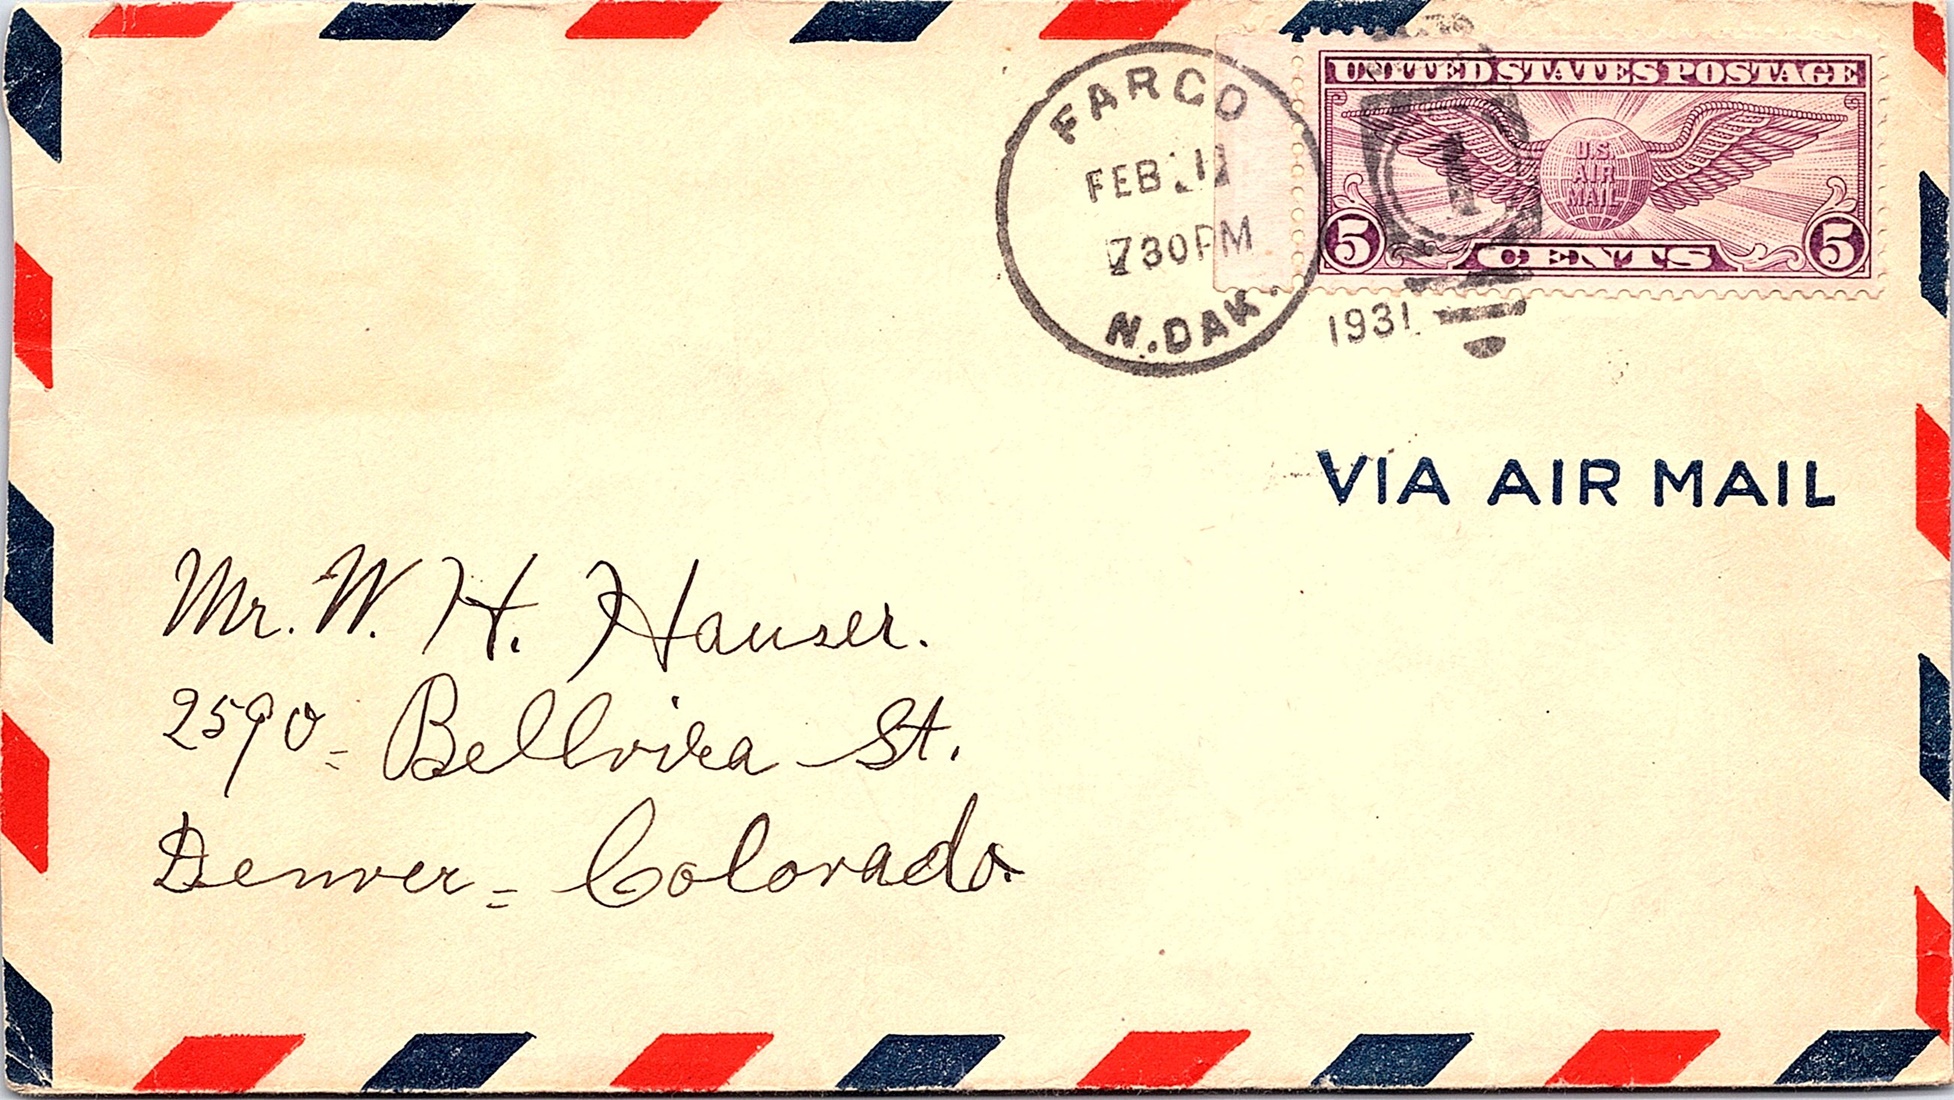 FARGO
FEB 11
730PM
N.DAK.
1931
UNITED STATES POSTAGE
U.S.
AIR
MAIL
5 CENTS 5
VIA AIR MAIL
Mr. W. H. Hauser.
2590 = Bellvira St.
Denver = Colorado.